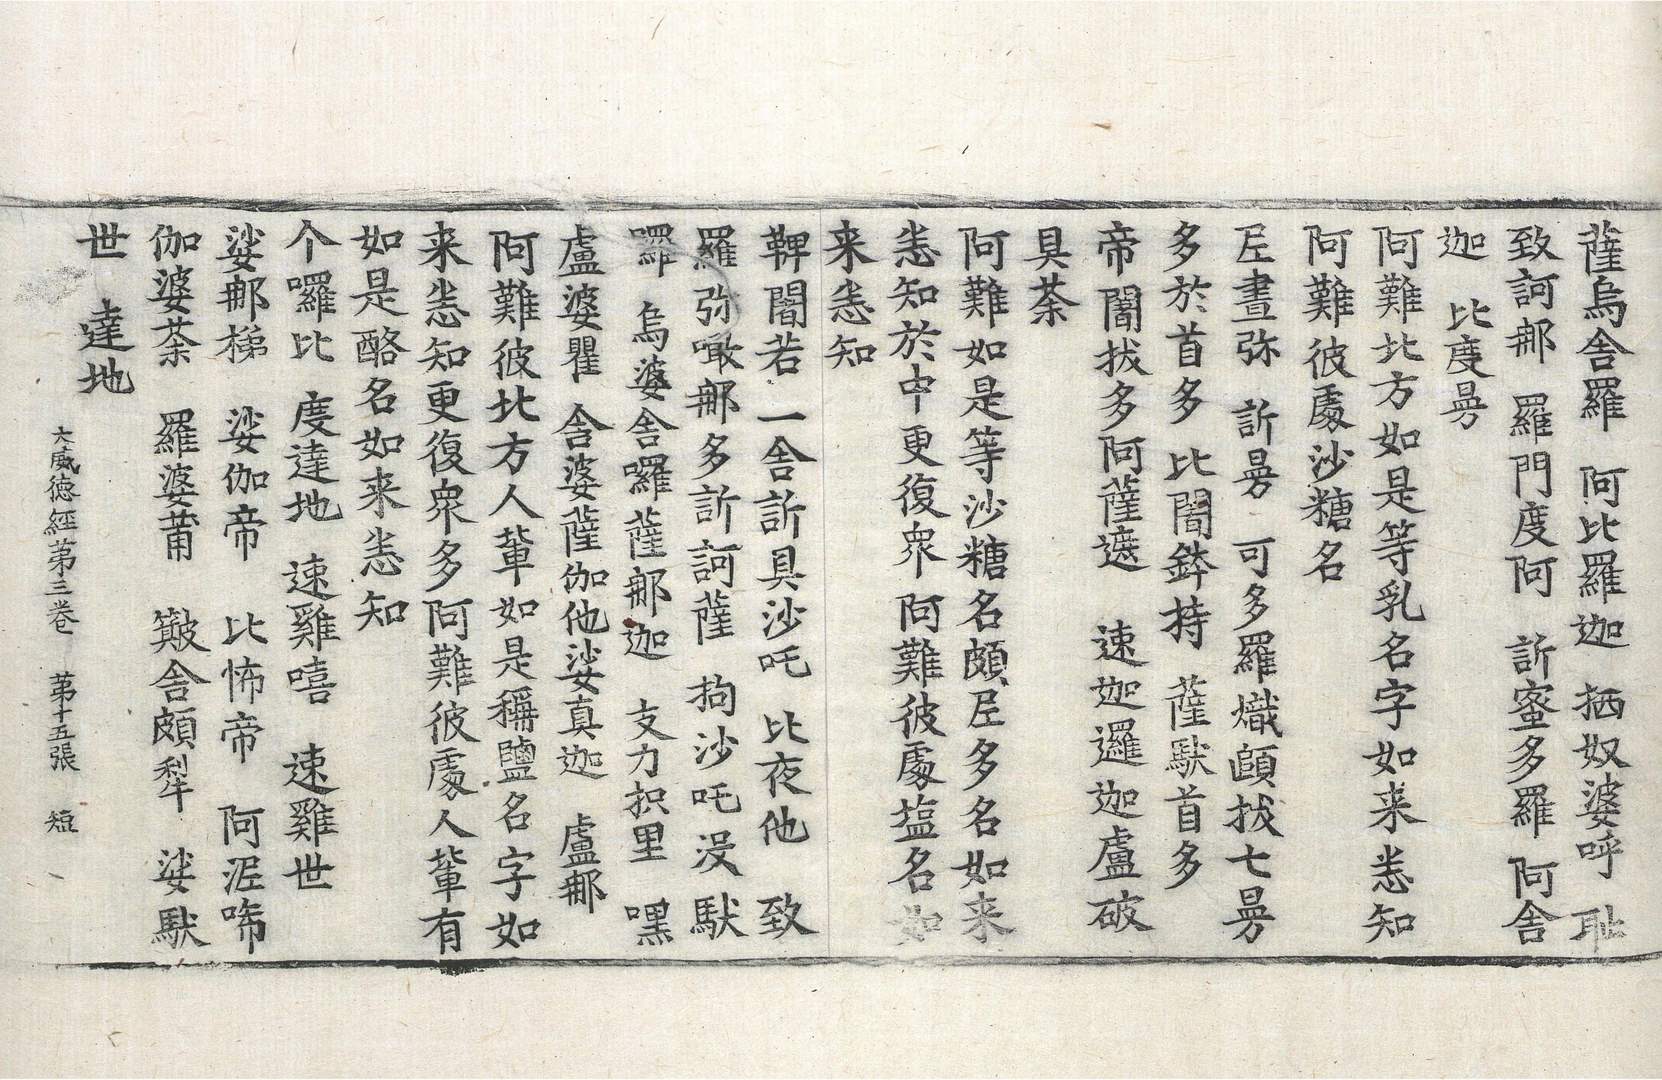 薩烏舍羅　阿比羅迦　栖奴婆呼　耻
致訶郍　羅門度阿　訢蜜多羅　阿舍
迦　比度㝵
阿難北方如是等乳名字如来悉知
阿難彼處沙糖名
𡰱晝弥　訢㝵　可多羅熾頗拔七㝵
多於首多　比闍鉢持　薩馱首多
帝闍拔多阿薩遮　速迦邏迦盧破
具荼
阿難如是等沙糖名頗𡰱多名如来
悉知於中更復衆阿難彼處塩名如
来悉知
鞞闍若　一舍訢具沙吒　比夜他　致
羅弥㗖郍多訢訶薩　拘沙吒没馱
囉　烏婆舍囉薩郍迦　支力抧里　嘿
盧婆瞿　舍婆薩伽他娑真迦　盧郍
阿難彼北方人軰如是稱鹽名字如
来悉知更復衆多阿難彼處人軰有
如是酪名如来悉知
个囉比　度達地　速雞嘻　速雞世
娑郍梯　娑伽帝　比怖帝　阿泥㗭
伽婆荼　羅婆莆　簸舍頗犁　娑馱
世　達地
大威德經第三卷　第十五張　短